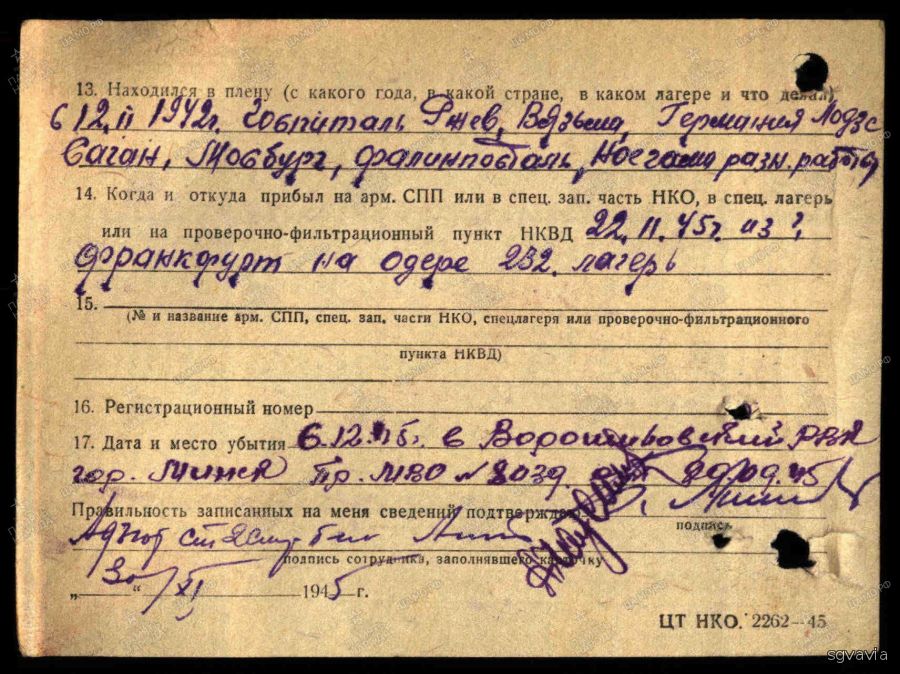 13. Находился в плену (с какого года, в какой стране, в каком лагере и что делал)
12.II 1942г. Госпиталь Ржев, Вязьма, Германия Лодзс
Саган, Мосбург, фалинпосталь, разн. работы
14. Когда и откуда прибыл на арм. СПП или в спец. зап. часть НКО, в спец. лагерь
или на проверочно-фильтрационный пункт НКВД 22.11.45г. из г.
франкфурт на одере 232. лагерь
15.
(№ и название арм. СПП, спец. зап. части НКО, спецлагеря или проверочно-фильтрационного
пункта НКВД)
16. Регистрационный номер
17. Дата и место убытия 6.12.45г. в Ворошиловский РВК
гор. Минск Пр. МВО №
Правильность записанных на меня сведений подтверждаю
подпись
подпись сотрудника, заполнявшего карточку
„30“/XI 1945 г.
ЦТ НКО. 2262—45
sgvavia